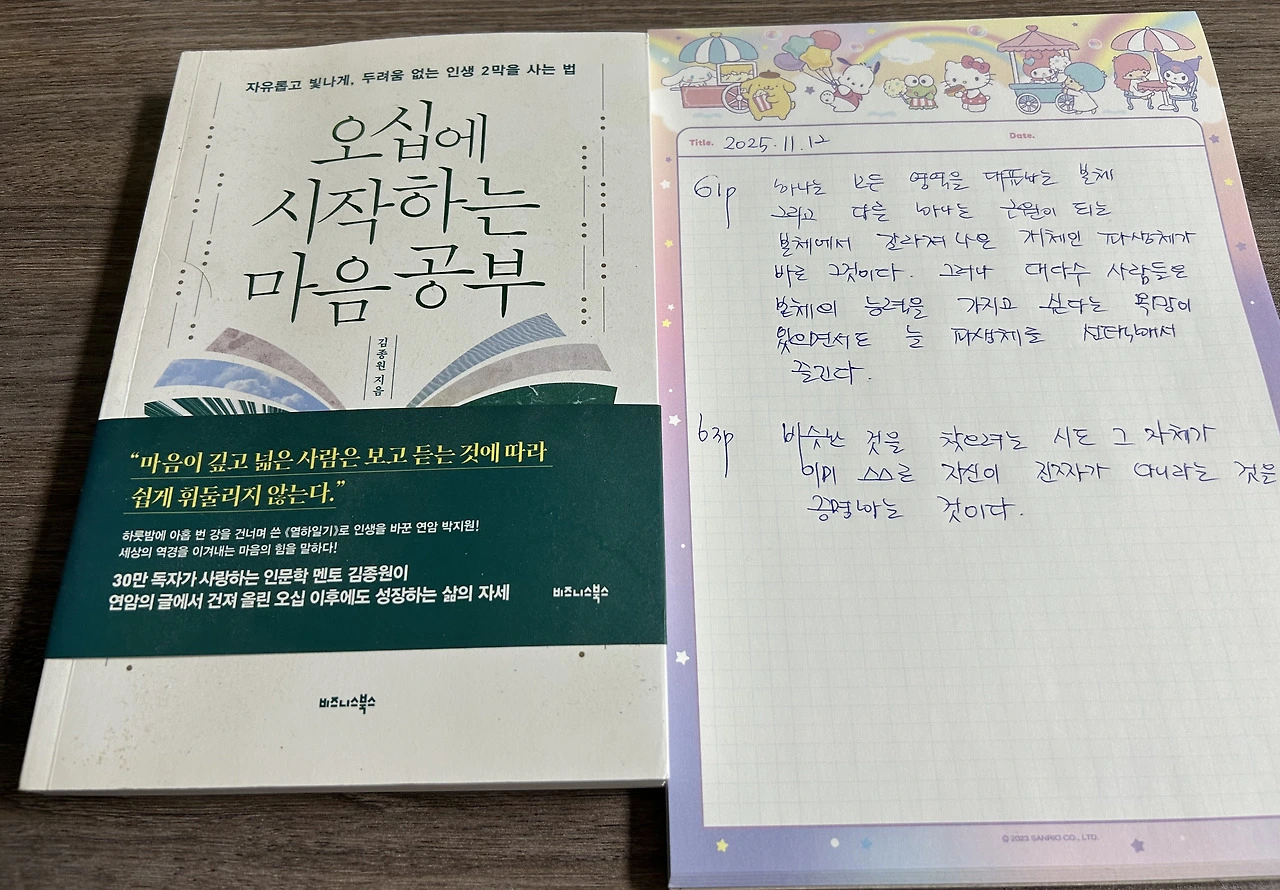 자유롭고 빛나게, 두려움 없는 인생 2막을 사는 법
오십에
시작하는
마음 공부
김종원 지음
“마음이 깊고 넓은 사람은 보고 듣는 것에 따라
쉽게 휘둘리지 않는다.”
하룻밤에 아홉 번 강을 건너며 쓴 《열하일기》로 인생을 바꾼 연암 박지원!
세상의 역경을 이겨내는 마음의 힘을 말하다!
30만 독자가 사랑하는 인문학 멘토 김종원이
연암의 글에서 건져 올린 오십 이후에도 성장하는 삶의 자세
비즈니스북스
비즈니스북스
Title. 2025.11.12 Date.
61p 하나는 모든 영역을 대표하는 본체
그리고 다른 하나는 근원이 되는
본체에서 갈라져 나온 개체인 파생체가
바로 그것이다. 그러나 대다수 사람들은
본체의 능력을 가지고 싶다는 욕망이
있으면서도 늘 파생체를 선택해서
즐긴다.
63p 비슷한 것을 찾으려는 시도 그 자체가
이미 스스로 자신이 진짜가 아니라는 것을
증명하는 것이다.
© 2023 SANRIO CO., LTD.